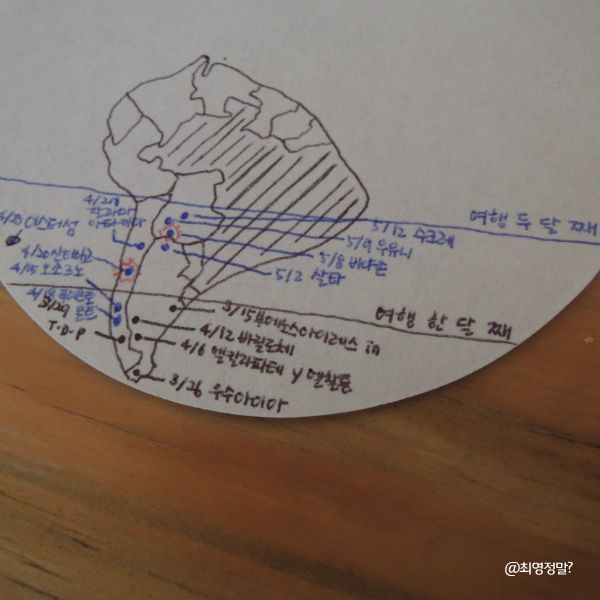 여행 두 달 째
4/28
칼라마
4/23 이스터섬
5/12 수크레
5/9 우유니
5/8 비아손
5/2 살타
4/20 산티아고
4/15 오소르노
여행 한 달 째
3/15 부에노스아이레스 in
4/12 바릴로체
4/6 엘칼라파테 y 엘찰튼
3/29
T.D.P
3/26 우수아이아
@최영정말?